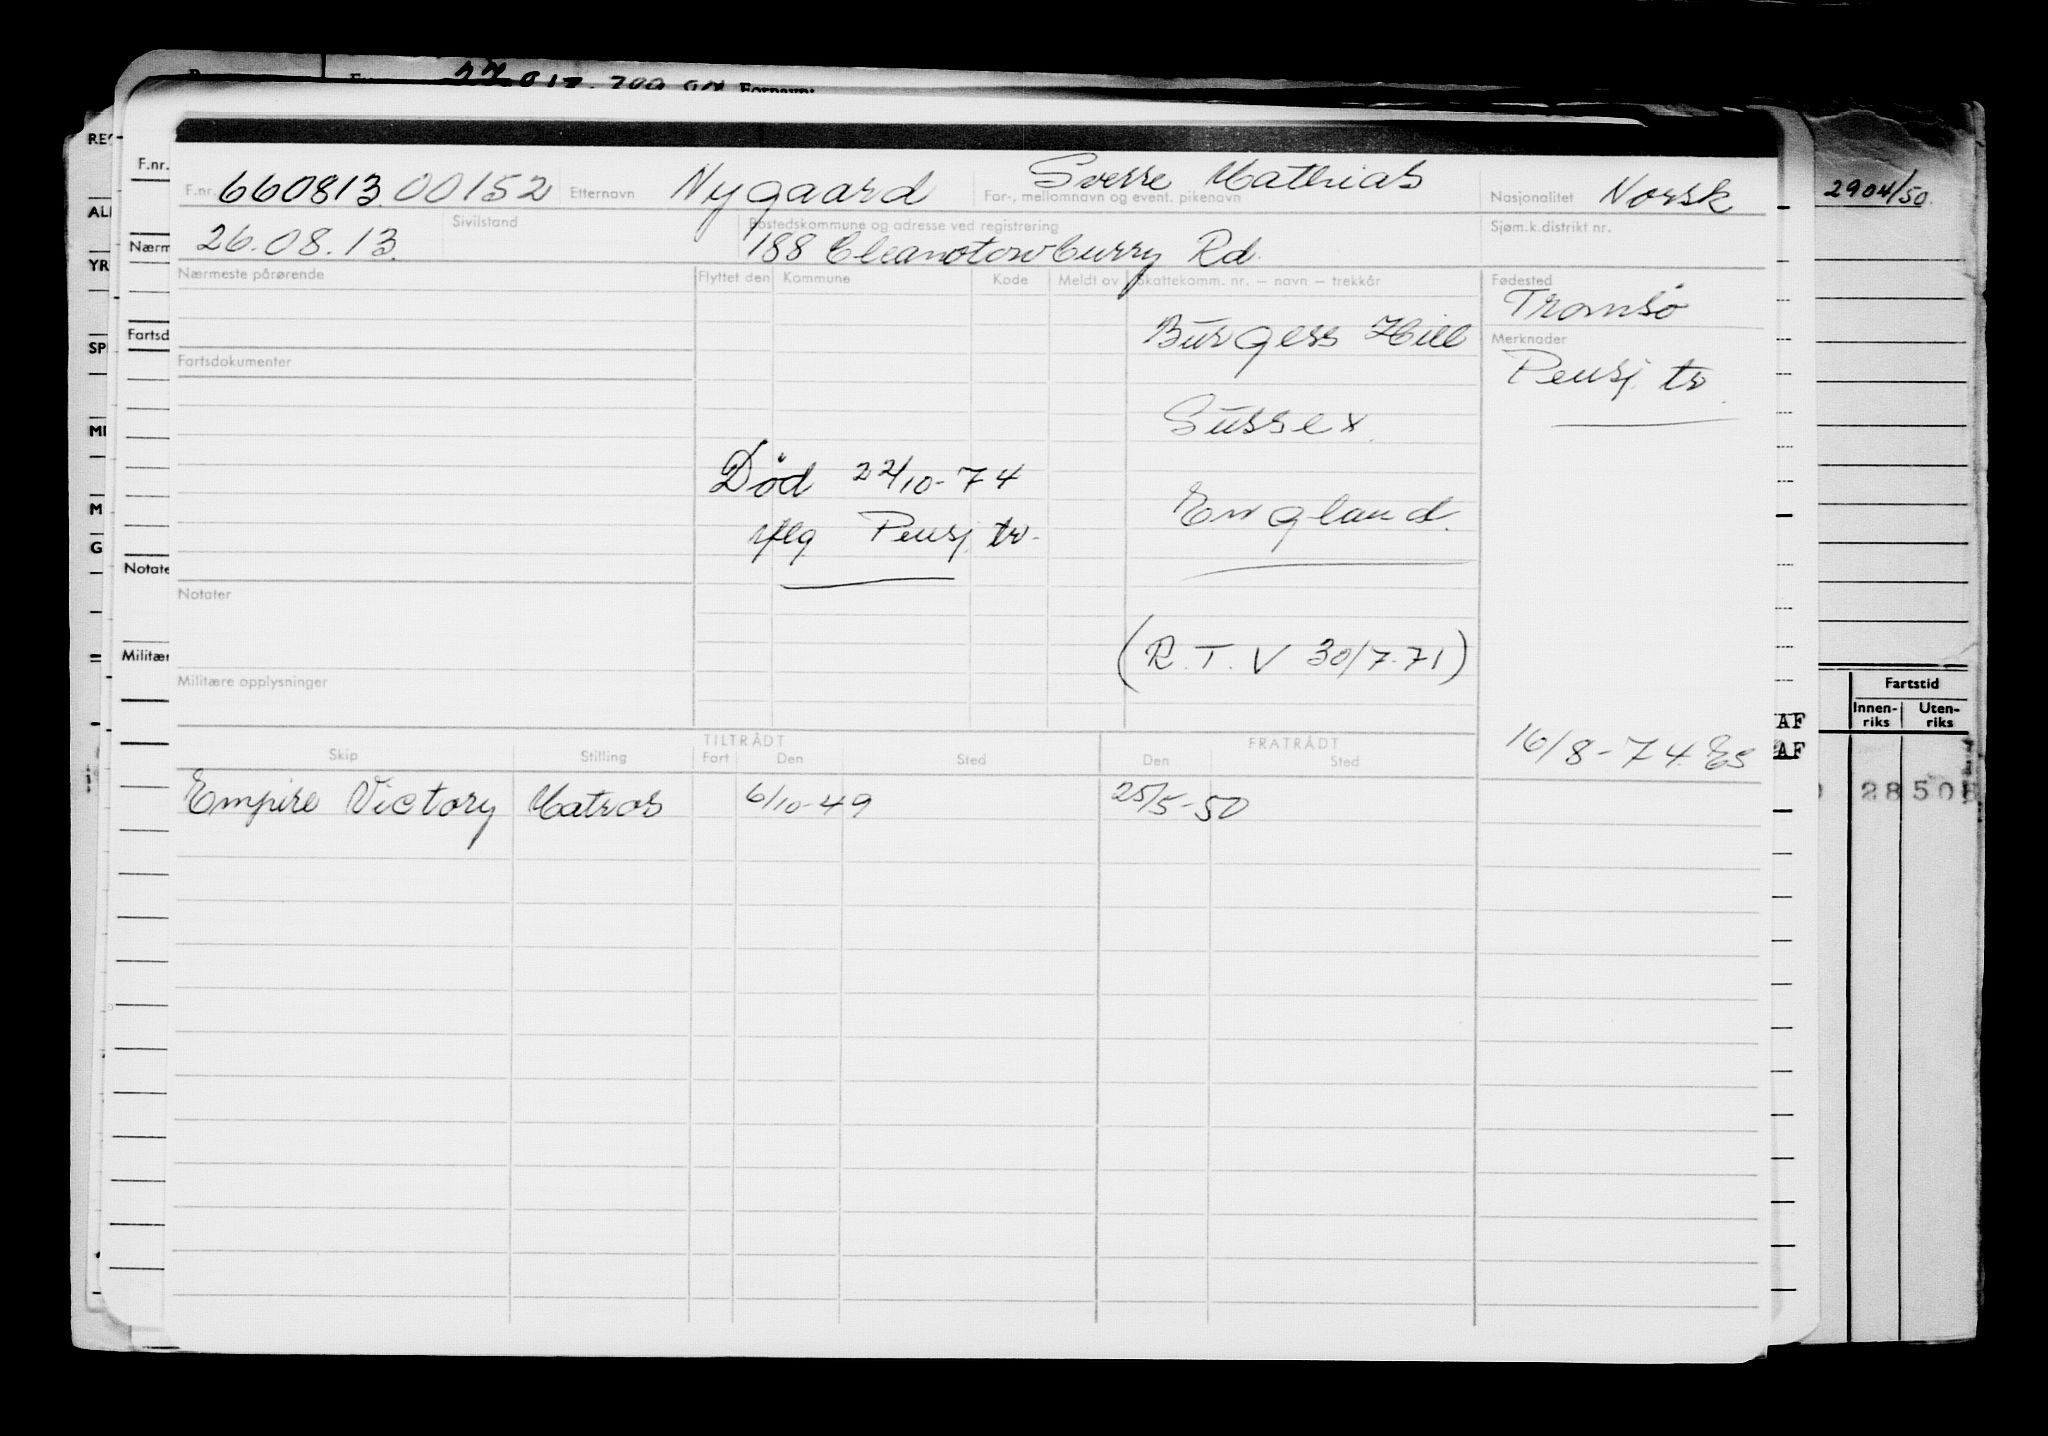 Fornavn:
F.nr. 660813 00152 Etternavn Nygaard For-, mellomnavn og event. pikenavn Sverre Mathias Nasjonalitet Norsk
2904/50
26.08.13. Sivilstand Bostedskommune og adresse ved registrering Sjøm.k.distrikt nr.
188 Rd.
Nærmeste pårørende Flyttet den Kommune Kode Meldt av Skattekomm. nr. – navn – trekkår Fødested
Tromsö
Burgess Hill Merknader
Fartsdokumenter Pensj. tr.
Sussex.
Død 22/10-74 England.
iflg Pensj. tr.
Notater
(R.T.V 30/7.71)
Militære opplysninger
Fartstid
Innen-riks Uten-riks
AF
AF
16/8-74 ES
TILTRÅDT FRATRÅDT
Skip Stilling Fart Den Sted Den Sted
Empire Victory Matros 6/10-49 25/5-50
28 50
F.nr.
Nærm
Fartsd
Notate
Militær
REG
YR
SP
M
G